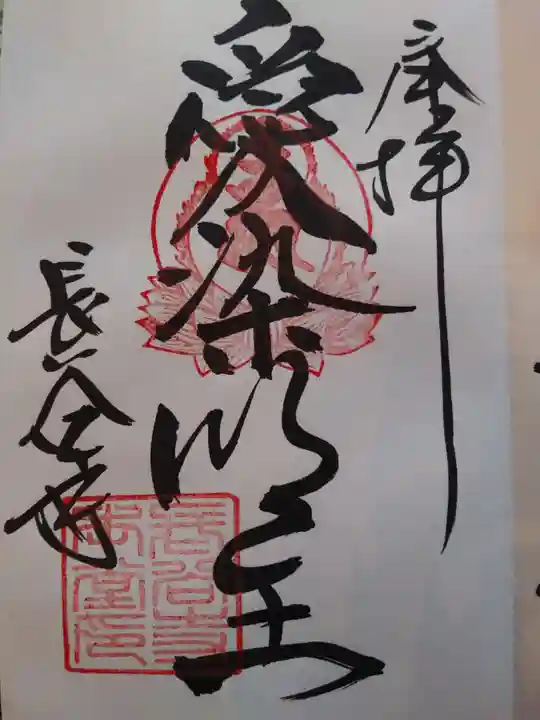 奉拝
愛染明王
長谷寺
長谷寺
本堂印